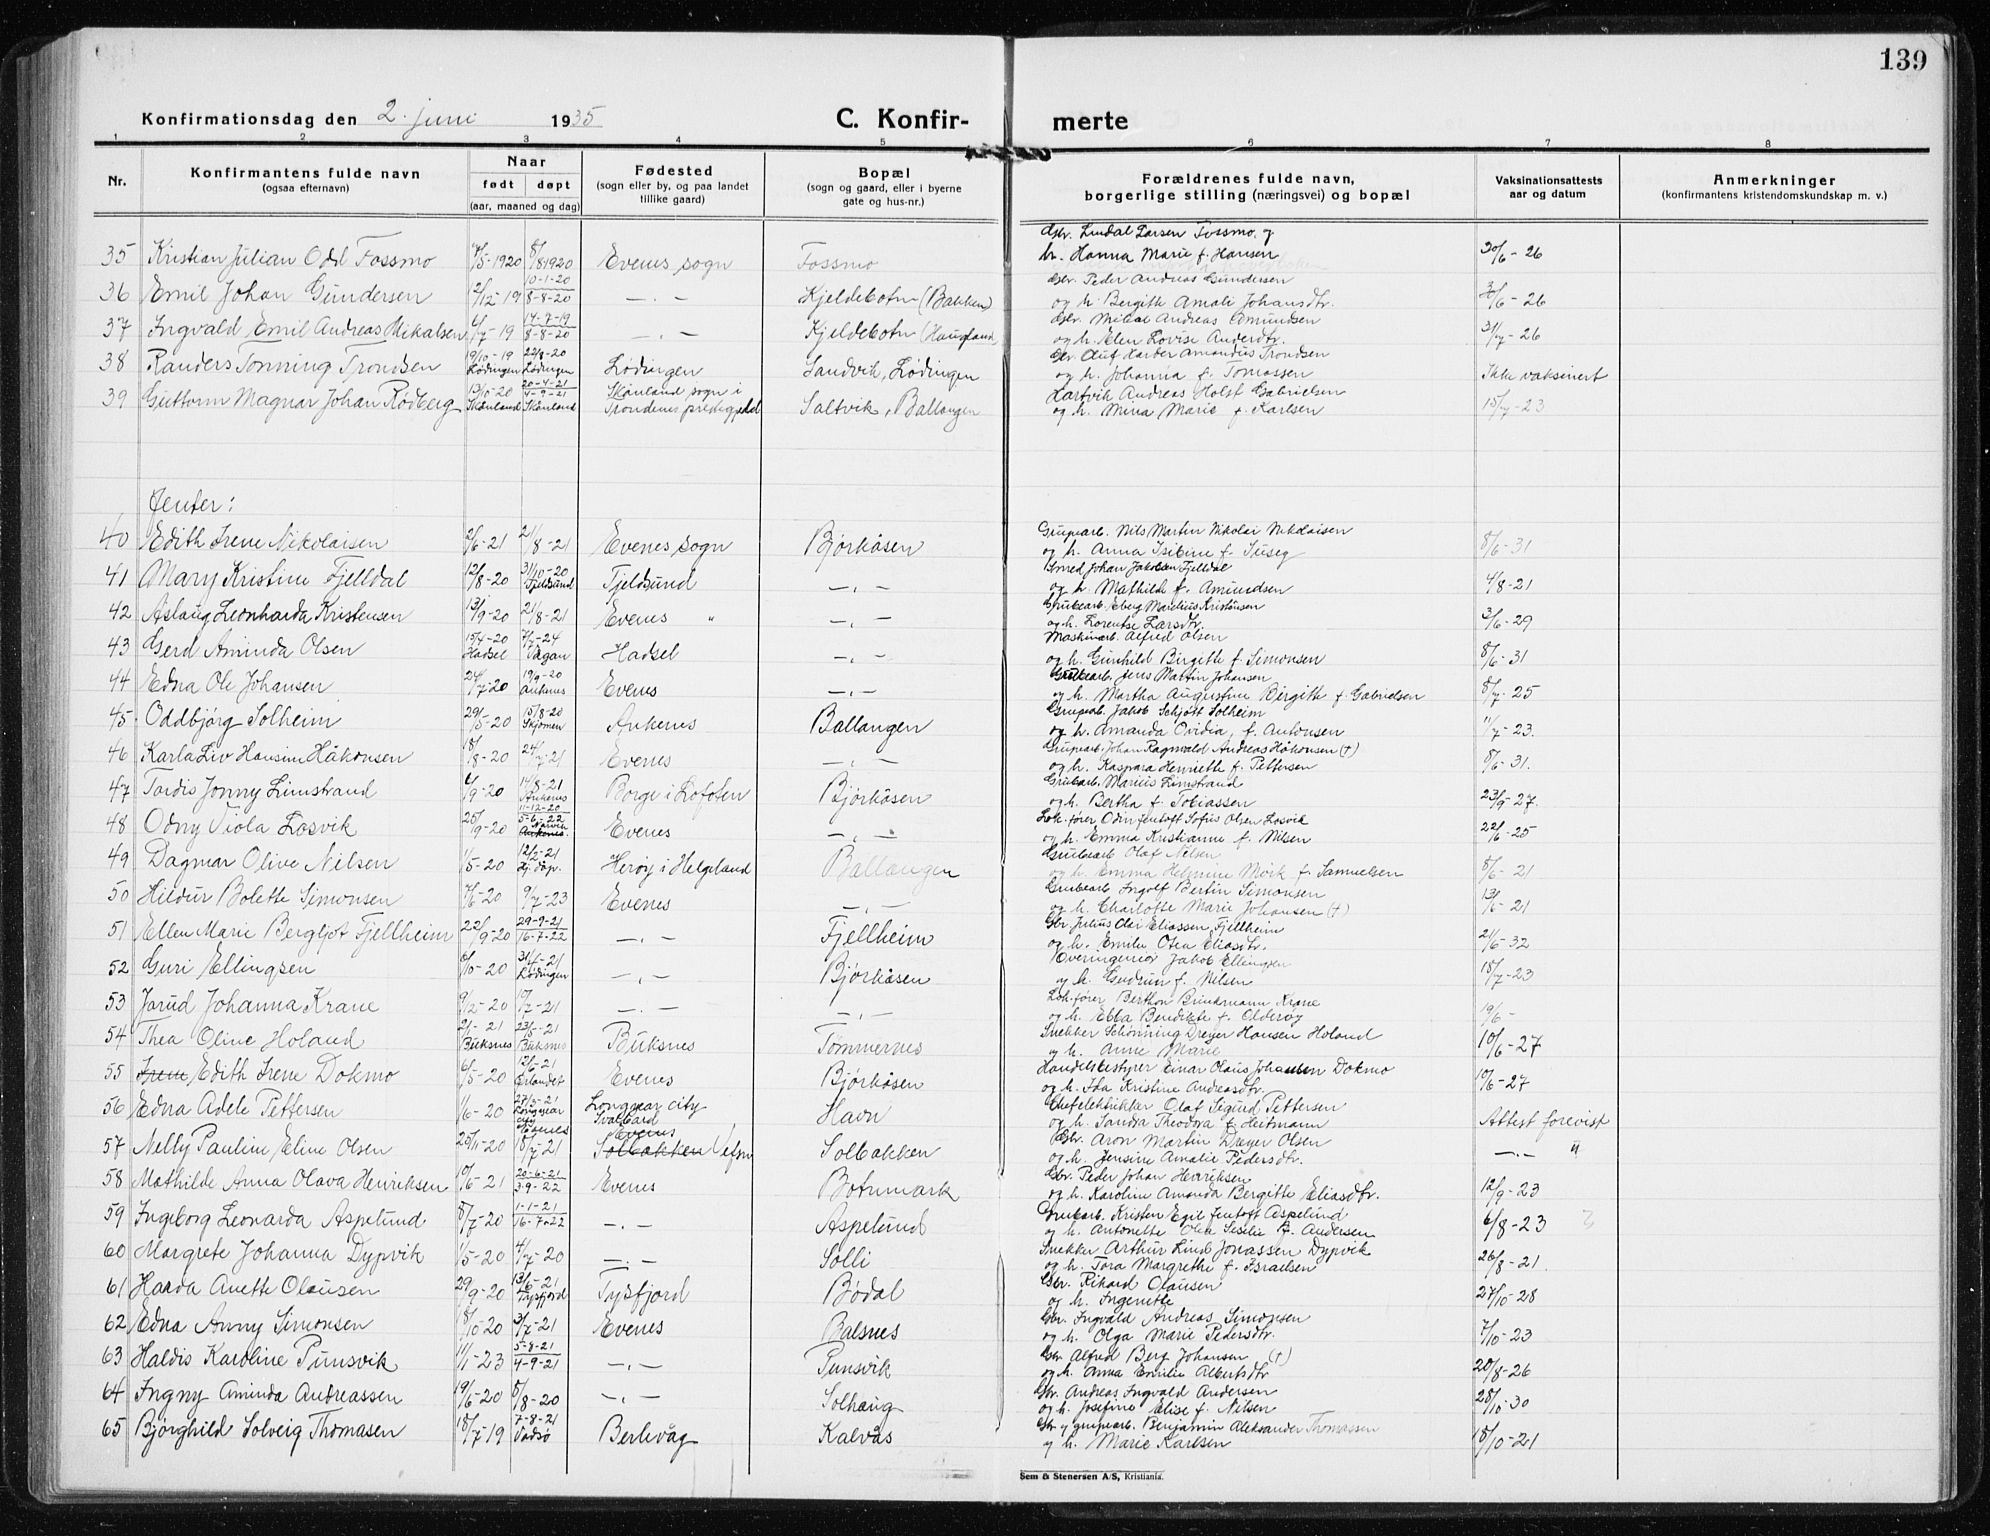 139
Konfirmationsdag den 2. juni 1935 C. Konfir- merte
1 2 3 4 5 6 7 8
Nr. Konfirmantens fulde navn (ogsaa efternavn) Naar født døpt (aar, maaned og dag) Fødested (sogn eller by, og paa landet tillike gaard) Bopæl (sogn og gaard, eller i byerne gate og hus-nr.) Forældrenes fulde navn, borgerlige stilling (næringsvei) og bopæl Vaksinationsattests aar og datum Anmerkninger (konfirmantens kristendomskundskap m. v.)
35 Kristian Julian Odd Fossmo 5-1920 8/8 1920 Evenes sogn Fossmo Gbr. Lindal Larsen Fossmo og h. Hanna Marie f. Hansen 30/6-26
36 Emil Johan Gundersen 2/12-19 10-1-20 8-8-20 —.— Kjeldebotn (Bakken) Gbr. Peder Andreas Gundersen og h. Bergith Amali Johansdtr. 30/6-26
37 Ingvald Emil Andreas Mikalsen 6/7-19 14-7-19 8-8-20 —.— Kjeldebotn (Haugland Gbr. Mikal Andreas Amundsen og h. Elen Lovise Andersdtr. 31/7-26
38 Randers Tonning Trondsen 19/10-19 Lødingen 22/8-20 Lødingen Lødingen Sandvik, Lødingen Gbr. Oluf Harder Amandus Trondsen og h. Johanna f. Tomassen Ikke vaksinert
39 Guttorm Magnar Johan Rødberg 13/10-20 Skånland 20-4-21 4-9-21 Skånland Skånland sogn i Trondenes prestegjeld Saltvik, Ballangen Hartvik Andreas Holst Gabrielsen og h. Mina Marie f. Karlsen 15/7-23
Jenter:
40 Edith Irene Nikolaisen 2/6-21 21/8-21 Evenes sogn Bjørkåsen Grupearb. Nils Martin Nikolai Nikolaisen og h. Anna Isibine f. Suseg 8/6-31
41 Mary Kristine Fjelldal 12/8-20 31/10-20 Fjeldsund Tjeldsund —.— Smed Johan Jakobsen Fjelldal og h. Mathilde f. Amundsen 4/8-21
42 Aslaug Leonharda Kristensen 13/9-20 21/8-21 Evenes " —.— Grubearb. Eberg Marelius Kristensen og h. Lorentse Larsdtr. 3/6-29
43 Gerd Aminda Olsen 15/4-20 Hadsel 7/7-24 Vågan Hadsel —.— Maskinarb. Alfred Olsen og h. Gunhild Birgitte f. Simonsen 8/6-31
44 Edna Ole Johansen 24/7-20 19/9-20 Ankenes Evenes —.— Grubearb. Jens Martin Johansen og h. Martha Augustine Birgith f. Gabrielsen 8/7-25
45 Oddbjørg Solheim 29/5-20 15/8-20 Skjomen Ankenes Ballangen Grupearb. Jakob Schjøtt Solheim og h. Amanda Ovidia, f. Antonsen 11/7-23.
46 Karla Liv Hansine Håkonsen 18/8-20 24/7-21 Evenes —.— Grupearb. Johan Ragnvald Andreas Håkonsen (†) og h. Kaspara Henriette f. Pettersen 8/6-31.
47 Tordis Jonny Limstrand 4/9-20 14/8-21 Ankenes Borge i Lofoten Bjørkåsen Grubearb. Marius Limstrand og h. Bertha f. Tobiassen 23/9-27.
48 Odny Viola Losvik 25/9-20 11-12-20 5-6-22 Narvik Ankenes. Evenes —.— Lok. fører Odin Jentoft Sofus Olsen Losvik og h. Emma Kristianne f. Nilsen 22/6-25
49 Dagmar Olive Nilsen 1/5-20 12/2-21 Hj. døp. Herøy i Helgeland Ballangen Grubearb Olaf Nilsen og h. Emma Helmine Mørk f. Samuelsen 8/6-21
50 Hildur Bolette Simonsen 7/6-20 9/7-23 Evenes —.— Grubearb Ingolf Bertin Simonsen og h. Charlotte Marie Johansen (†) 13/6-21
51 Ellen Marie Bergljot Fjellheim 22/9-20 29-9-21 16-7-22 —.— Fjellheim Gbr Julius Olai Eliassen Fjellheim og h. Emilie Otea Eliasdtr. 21/6-32
52 Guri Ellingsen 8/10-20 31/4-21 Lødingen —.— Bjørkåsen Overingeniør Jakob Ellingsen og h. Gudrun f. Nilsen 18/7-23
53 Jorud Johanna Krane 9/12-20 10/7-21 —.— —.— Lok. fører Berthon Brinkmann Krane og h. Ebba Bendikte f. Olderøy 19/6-
54 Thea Oline Holand 2/1-21 Buksnes 23/5-21 Buksnes Buksnes Tømmernes Snekker Schønning Dreyer Hansen Holand og h. Anne Marie 10/6-27
55 Irene Edith Irene Dokmo 6/5-20 12/6-21 Ørlandet Evenes Bjørkåsen Handelsbestyrer Einar Olaus Johansen Dokmo og h. Ida Kristine Andreasdtr. 10/6-27
56 Edna Adele Pettersen 1/6-20 27/3-21 Longyear city Longyear city Svalbard Havn Chefelektrikker Olaf Sigurd Pettersen og h. Sandra Theodora f. Heitmann Attest forevist
57 Nelly Pauline Eline Olsen 25/11-20 Evenes 18/7-21 Evenes Solbakken Vefsn Solbakken Gbr. Aron Martin Dreyer Olsen og h. Jensine Amalie Pedersdtr. —.— "
58 Mathilde Anna Olava Henriksen 10/6-21 20-6-21 3-9-22 Evenes Botnmark Gbr. Peder Johan Henriksen og h. Karoline Amanda Bergitte Eliasdtr. 12/9-23
59 Ingeborg Leonarda Aspelund 8/7-20 1-1-21 16-7-22 —.— Aspelund Grubearb. Kristen Egil Jentoft Aspelund og h. Antonette Olea Seselie f. Andersen 6/8-23
60 Margrete Johanna Dypvik 1/5-20 4/7-20 —.— Solli Snekker Arthur Lind Jonassen Dypvik og h. Tora Margrethe f. Israelsen 26/8-21.
61 Haarda Anette Olausen 29/9-20 13/6-21 Tysfjord Tysfjord Bødal Gbr. Rikard Olausen og h. Ingenette 27/10-28
62 Edna Anny Simonsen 18/10-20 3/7-21 Evenes Balsnes Gbr. Ingvald Andreas Simonsen og h. Olga Marie Pedersdtr. 7/10-23
63 Haldis Karoline Punsvik 1/1-23 5-8-21 4-9-21 —.— Punsvik Gbr Alfred Berg Johansen (†) og h. Anna Emilie Albertsdtr 20/8-26
64 Ingny Aminda Andreassen 19/6-20 8/8-20 —.— Solhaug Gbr. Andreas Ingvald Andersen og h. Josefine Elise f. Nilsen 28/10-30
65 Bjørghild Solveig Thomasen 18/7-19 7-8-21 Vadsø Berlevåg Kalvås Gbr og grupearb. Benjamin Aleksander Thomassen og h. Marie Karlsen 18/10-21
Sem & Stenersen A/S, Kristiania.